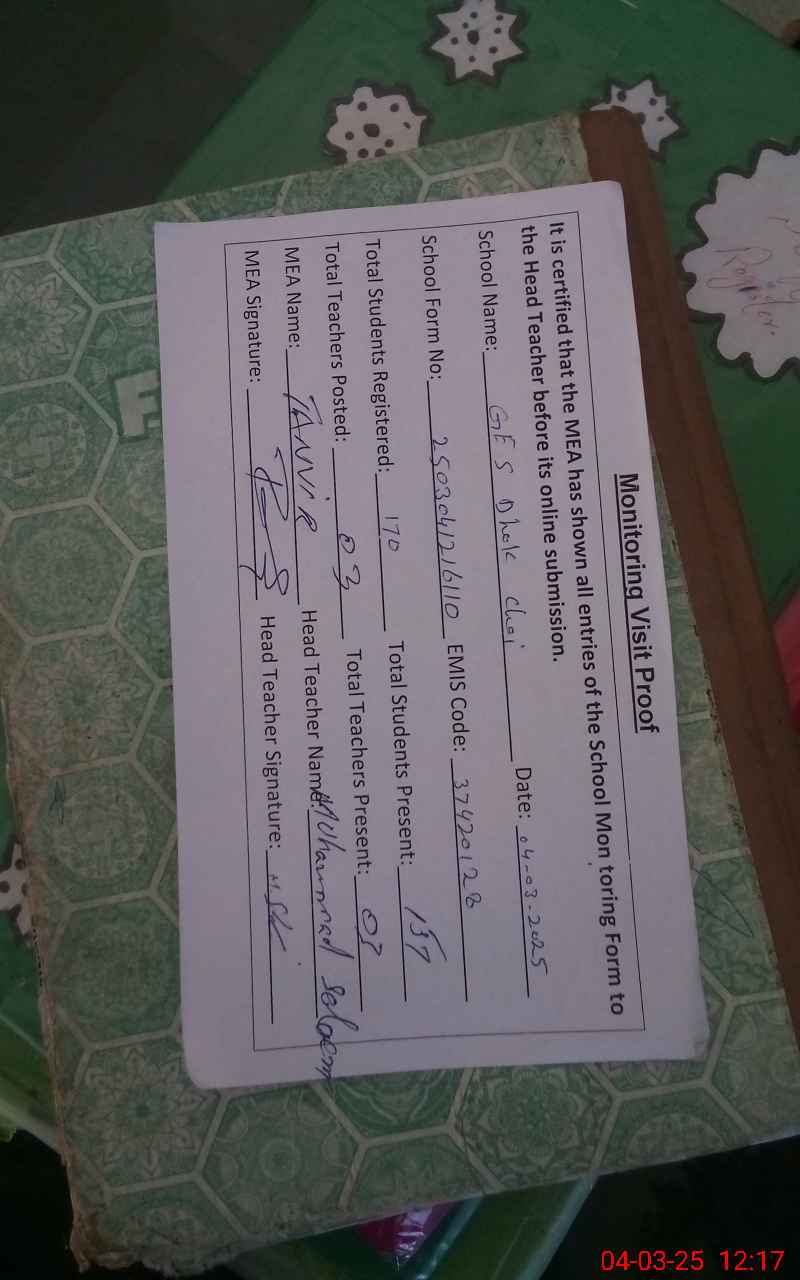 Monitoring Visit Proof
It is certified that the MEA has shown all entries of the School Mon toring Form to
the Head Teacher before its online submission.
School Name: GES Dhok Choi Date: 04-03-2025
School Form No: 2503041216110 EMIS Code: 37420128
Total Students Registered: 170 Total Students Present: 157
Total Teachers Posted: 03 Total Teachers Present: 03
MEA Name: TANVIR Head Teacher Name: Muhammad Saleem
MEA Signature: Head Teacher Signature:
Register
04-03-25 12:17